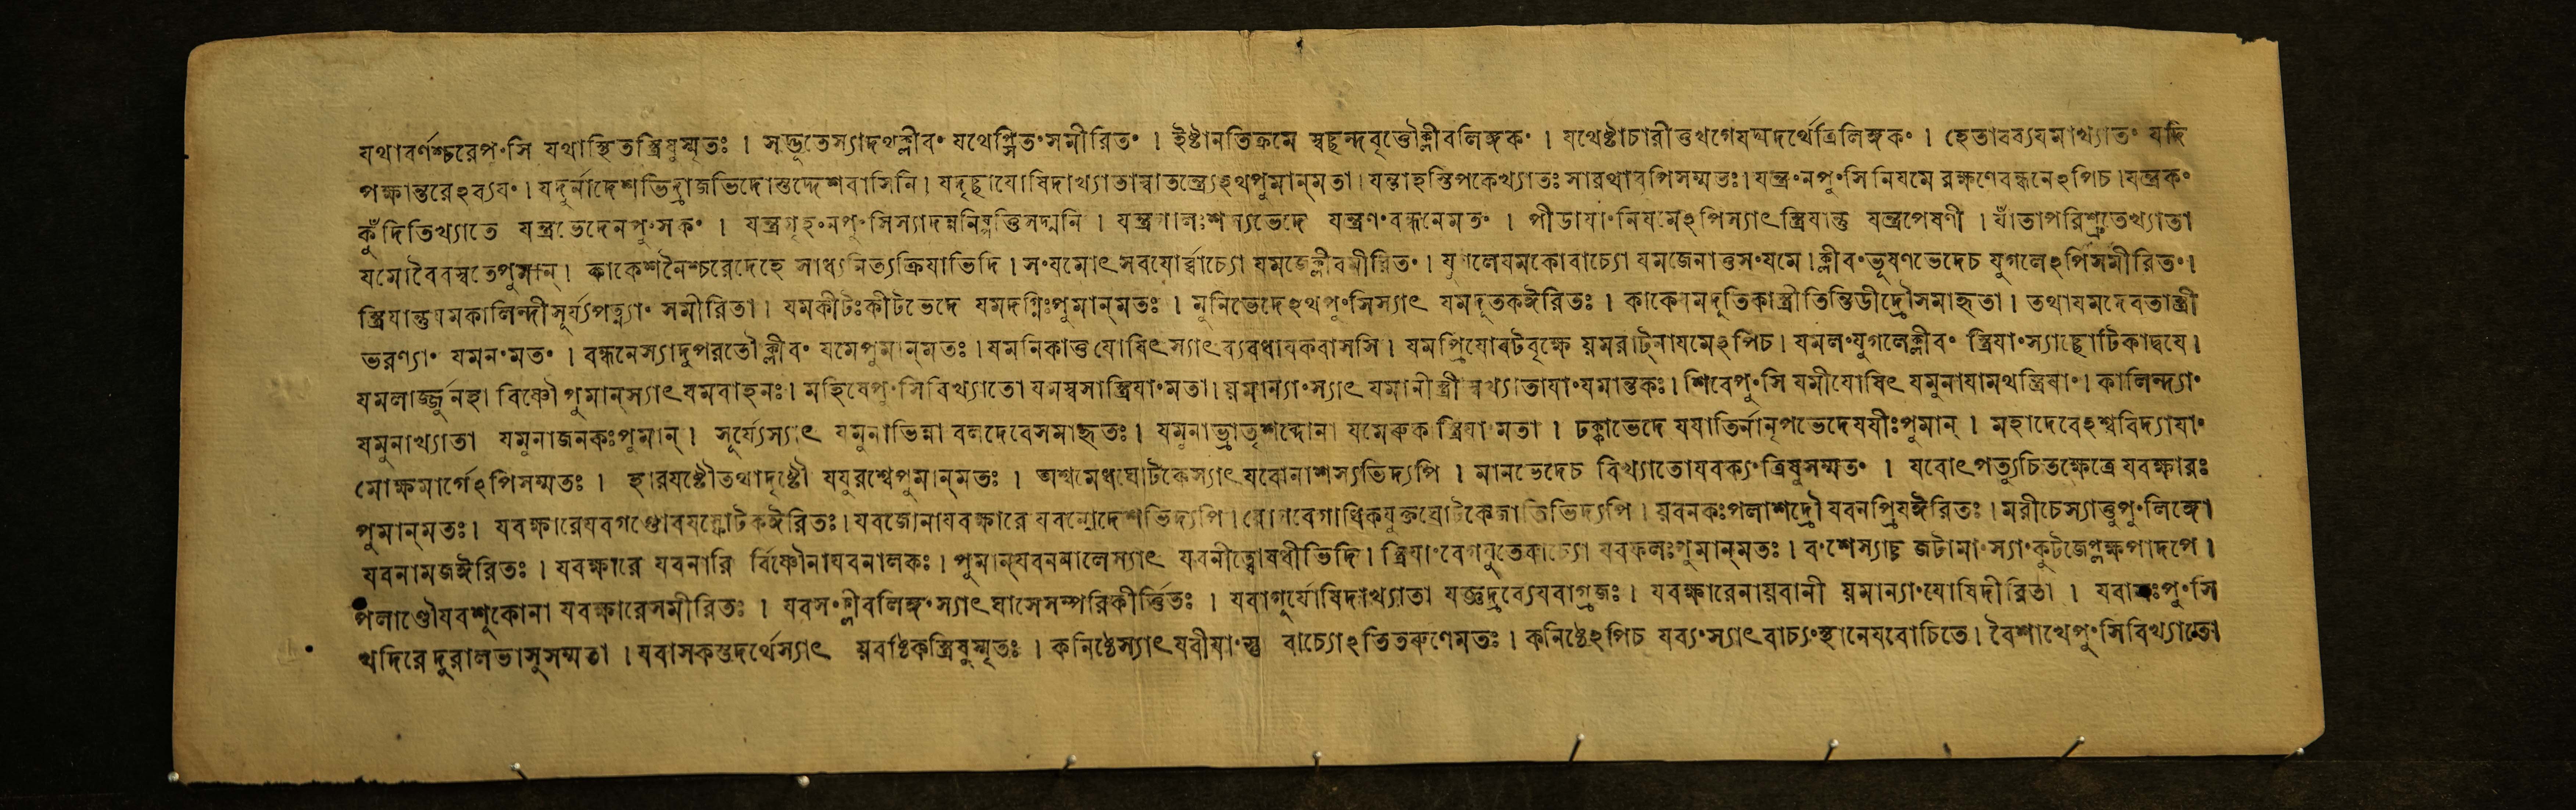 যথাবর্ণশ্চরেপুংসি যথাস্থিতস্ত্রিষুস্মৃতঃ । সদ্ভূতেস্যাদথক্লীবং যথেপ্সিতং সমীরিতং । ইষ্টানতিক্রমে স্বছন্দবৃত্তৌক্লীবলিঙ্গকং । যথেষ্টাচারীত্তথগেযম্মদর্থেত্রিলিঙ্গকং । হেতাবব্যযমাখ্যাতং যদি
পক্ষান্তরেঽব্যযং । যদুর্নাদেশভিদ্রাজভিদোস্তদ্দেশবাসিনি । যদৃচ্ছাযোষিদাখ্যাতাস্বাতন্ত্র্যেঽথপুমান্‌মতা । যন্তাহস্তিপকেখ্যাতঃ সারথাবপিসম্মতঃ । যন্ত্রং নপুংসি নিযমে রক্ষণেবন্ধনেঽপিচ । যন্ত্রকং
কুঁদিতিখ্যাতে যন্ত্রভেদেনপুংসকং । যন্ত্রগৃহং নপুংসিস্যাদন্ননিষ্পত্তিসদ্মনি । যন্ত্রগোলঃশস্যভেদে যন্ত্রণং বন্ধনেমতং । পীডাযাং নিযমেঽপিস্যাৎস্ত্রিযান্তু যন্ত্রপেষণী । যাঁতাপরিশ্রুতেখ্যাতা
যমোবৈবস্বতেপুমান্‌ । কাকেশনৈশ্চরেদেহে সাধ্যনিত্যক্রিযাভিদি । সংযমোৎসবযোর্ব্বাচ্যো যমজেক্লীবমীরিতং । যুগলেযমকোবাচ্যো যমজেনাত্তসংযমে । ক্লীবং ভূষণভেদেচ যুগলেঽপিসমীরিতং ।
স্ত্রিযান্তুযমকালিন্দীসূর্য্যপত্ন্যাং সমীরিতা । যমকীটঃকীটভেদে যমদগ্নিঃপুমান্‌মতঃ । মুনিভেদেঽথপুংসিস্যাৎ যমদূতকঈরিতঃ । কাকেযমদূতিকাস্ত্রীতিন্তিডীদ্রৌসমাহৃতা । তথাযমদেবতাস্ত্রী
ভরণ্যাং যমনং মতং । বন্ধনেস্যাদুপরতৌ ক্লীবং যমেপুমান্‌মতঃ । যমনিকাত্তু যোষিৎস্যাৎব্যবধাযকবাসসি । যমপ্রিযোবটবৃক্ষে য়মরাট্‌নাযমেঽপিচ । যমলং যুগলেক্লীবং স্ত্রিযাং স্যাদ্ঘোটিকাদ্বযে ।
যমলার্জ্জুনহা বিষ্ণৌ পুমান্‌স্যাৎযমবাহনঃ । মহিষেপুংসিবিখ্যাতো যমস্বসাস্ত্রিযাং মতা । য়মান্যাং স্যাৎ যমানীস্ত্রী যমান্তকঃ । শিবেপুংসি যমীযোষিৎ যমুনাযামথস্ত্রিযাং । কালিন্দ্যাং
যমুনাখ্যাতা যমুনাজনকঃপুমান্‌ । সূর্য্যেস্যাৎ যমুনাভিন্না বলদেবেসমাহৃতঃ । যমুনাভ্রাতৃশব্দোনা যমেৰুকাস্ত্রিযাং মতা । ঢক্কাভেদে যযাতির্নানৃপভেদেযযীঃপুমান্‌ । মহাদেবেঽশ্ববিদ্যাযাং
মোক্ষমার্গেঽপিসম্মতঃ । হারযষ্টৌতথাদৃষ্টৌ যযুরশ্বেপুমান্‌মতঃ । অশ্বমেধঘোটকেস্যাৎ যবোনাশস্যভিদ্যপি । মানভেদেচ বিখ্যাতোযবক্যং ত্রিষুসম্মতং । যবোৎপত্যুচিতক্ষেত্রে যবক্ষারঃ
পুমান্‌মতঃ । যবক্ষারেযবগণ্ডোবযস্ফোটকঈরিতঃ । যবজোনাযবক্ষারে যবনোদেশভিদ্যপি । বেগাধিকযুক্তঘোটকেজাতিভিদ্যপি । য়বনকঃপলাশদ্রৌ যবনপ্রিযঈরিতঃ । মরীচেস্যাত্তুপুংলিঙ্গো
যবনামজঈরিতঃ । যবক্ষারে যবনারি র্বিষ্ণৌনাযবনালকঃ । পুমান্‌যবননালেস্যাৎ যবনীত্বোষধীভিদি । স্ত্রিযাং বেগযুতেবাচ্যো যবফলঃপুমান্‌মতঃ । বংশেস্যাচ্চ জটামাংস্যাং কুটজেপ্লক্ষপাদপে ।
পলাণ্ডৌযবশূকোনা যবক্ষারেসমীরিতঃ । যবসং ক্লীবলিঙ্গং স্যাৎঘাসেসম্পরিকীর্ত্তিতঃ । যবাগূর্যোষিদাখ্যাতা যজ্ঞদ্রব্যেযবাগ্রজঃ । যবক্ষারেনায়বানী য়মান্যাং যোষিদীরিতা । যবাসঃপুংসি
খদিরে দুরালভাসুসম্মতা । যবাসকস্তদর্থেস্যাৎ য়বষ্ঠিকস্ত্রিষুস্মৃতঃ । কনিষ্ঠেস্যাৎযবীযাংস্তু বাচ্যোঽতিতৰুণেমতঃ । কনিষ্ঠেঽপিচ যব্যং স্যাৎবাচ্যং স্থানেযবোচিতে । বৈশাখেপুংসিবিখ্যাতো